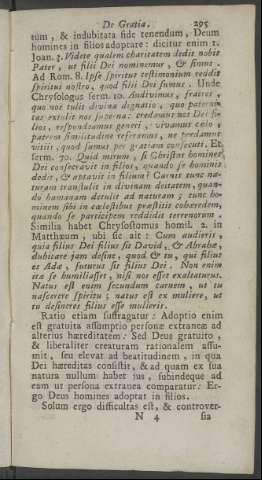 De Gratia. 295
tum, & indubitata fide tenendum, Deum
homines in filios adoptare: dicitur enim 1.
Joan. 3. Videte qualem charitatem dedit nobis
Pater, ut filii Dei nominemur, & simus.
Ad Rom. 8. Ipse spiritus testimonium reddit
spiritui nostro, quod filii Dei sumus. Unde
Chrysologus serm. 10. Audivimus, fratres,
quo nos tulit divina dignatio, quo paternitas
extulit nos superna: credamus nos Dei filios,
respondeamus generi, vivamus cælo,
patrem similitudine referamus, ne perdamus
vitiis, quod sumus per gratiam consecuti. Et
serm. 70. Quid mirum, si Christus homines
Dei consecravit in filios, quando se hominis
dedit, & aptavit in filium? Carnis tunc naturam
transtulit in divinam deitatem, quando
humanam detulit ad naturam; tunc hominem
sibi in cælestibus præstitit cohæredem,
quando se participem reddidit terrenorum.
Similia habet Chrysostomus homil. 2. in
Matthæum, ubi sic ait: Cum audieris,
quia filius Dei filius sit David, & Abrahæ,
dubitare jam desine, quod & tu, qui filius
es Adæ, futurus sis filius Dei. Non enim
ita se humiliasset, nisi nos esset exaltaturus.
Natus est enim secundum carnem, ut tu
nascerere spiritu; natus est ex muliere, ut
tu desineres filius esse mulieris.
Ratio etiam suffragatur: Adoptio enim
est gratuita assumptio personæ extraneæ ad
alterius hæreditatem: Sed Deus gratuito,
& liberaliter creaturam rationalem assumit,
seu elevat ad beatitudinem, in qua
Dei hæreditas consistit, & ad quam ex sua
natura nullum habet jus, subindeque ad
eam ut persona extranea comparatur: Ergo
Deus homines adoptat in filios.
Solum ergo difficultas est, & controver-
N 4 sia